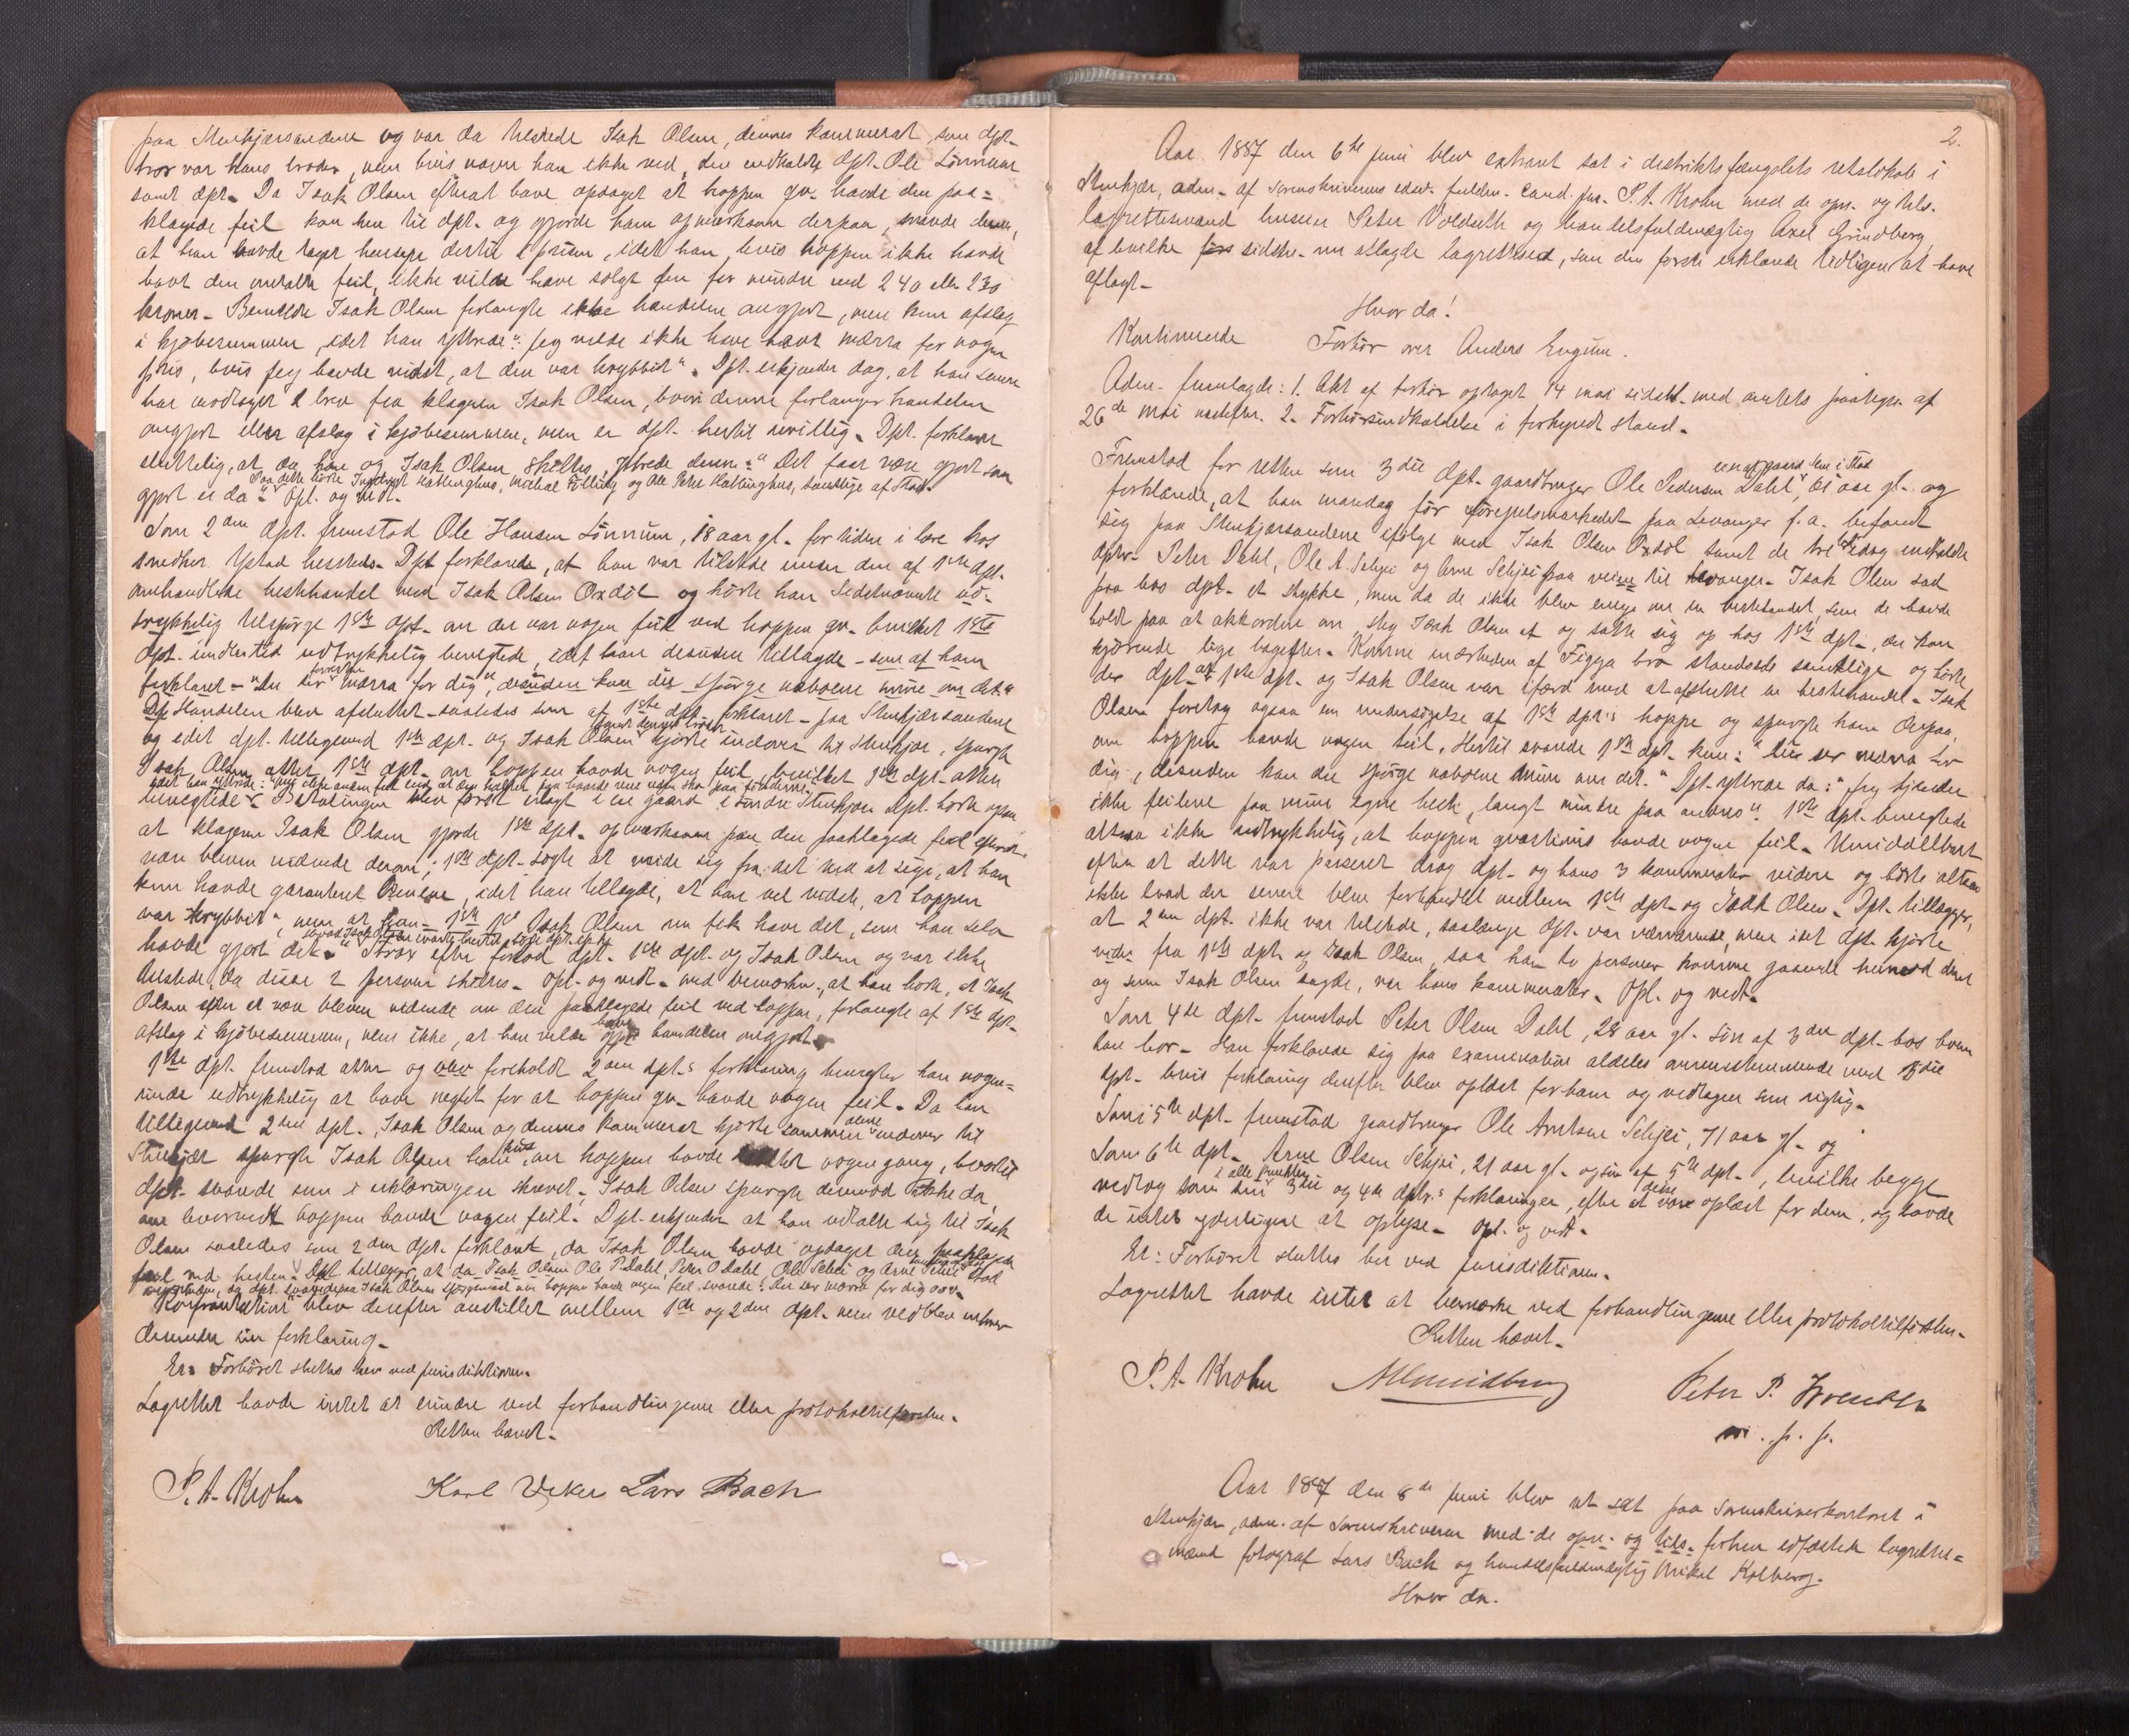 paa Stenkjærsandene og var da tilstede Isak Olsen, dennes kammerat, som dpt.
tror var hans broder, men hvis navn han ikke ved, den indkaldte dpt. Ole Lönnum
samt dpt. Da Isak Olsen efterat have opdaget at hoppen qv. havde den paa=
klagede feil kom hen til dpt. og gjorde ham opmærksom derpaa, svarede denne,
at han havde taget hensyn dertil i prisen, idet han, hvis hoppen ikke havde
havt den omtalte feil, ikke vilde have solgt den for mindre end 240 eller 230
kroner. Bemeldte Isak Olsen forlangte ikke handelen omgjort, men kun afslag
i kjöbesummen, idet han yttrede: "Jeg vilde ikke have havt mærra for nogen
pris, hvis jeg havde vidst, at den var krybbit". Dpt. erkjender dog, at han senere
har modtaget 2 brev fra klageren Isak Olsen, hvori denne forlanger handelen
omgjort eller afslag i kjöbesummen, men er dpt. hertil uvillig. Dpt. forklarer
sluttelig, at da han og Isak Olsen skiltes, yttrede denne: "Det faar være gjort som
Paa dette hörte Ingebrigt Kaldinghus, Mikal Følling og Ole Peter Kaldinghus, samtlige af Stod.
gjort er da". Opl. og vedt.
Som 2den dpt. fremstod Ole Hansen Lönnum, 18 aar gl. for tiden i lære hos
snedker Ystad herstede. Dpt forklarede, at han var tilstede under den af 1ste dpt.
omhandlede hestehandel med Isak Olsen Oxdöl og hörte han Sidstnævnte ud-
trykkelig tilspørge 1ste dpt. om der var nogen feil ved hoppen qv. hvilket 1ste
dpt. imidlertid udtrykkelig benegtede, idet han desuden tillagde - som af ham
forresten
forklaret - "Du ser mærra for dig", desuden kan du spörge naboerne mine om det."
Handelen blev afsluttet - saaledes som af 1ste dpt. forklaret - paa Stenkjærsandene
samt dennes broder
og idet dpt. tilligemed 1ste dpt. og Isak Olsen kjörte indover til Stenkjær, spurgte
Isak Olsen atter 1ste dpt. om hoppen havde nogen feil, hvilket 1ste dpt. atter
benegtede. Betalingen blev först erlagt i en gaard i söndre Stenkjær. Dpt. hörte ogsaa
at klageren Isak Olsen gjorde 1ste dpt. opmærksom paa den paaklagede feil efterat
være bleven vidende derom; 1ste dpt. sögte at vride sig fra det ved at sige, at han
kun havde garanteret Benene, idet han tillagde, at han vel vidste, at hoppen
var "krybbit", men at Isak Olsen nu fik have det, som han selv
havde gjort det." Strax efter forlod dpt. 1ste dpt. og Isak Olsen og var ikke
tilstede, da disse 2 personer skiltes. Opl. og vedt. med bemærkn., at han hörte, at Isak
Olsen efter at være bleven vidende om den paaklagede feil ved hoppen, forlangte af 1ste dpt.
have
afslag i kjöbesummen, men ikke, at han vilde handelen omgjort.
1ste dpt. fremstod atter og blev foreholdt 2den dpt.s forklaring benegter han nogen=
sinde udtrykkelig at have negtet for at hoppen qv. havde nogen feil. Da han
tilligemed 2den dpt., Isak Olsen og dennes kammerat kjörte sammen indover til
Stenkjær spurgte Isak Olsen ham, om hoppen havde nogen gang, hvortil
dpt. svarede som i erklæringen skrevet. Isak Olsen spurgte derimod ikke da,
om hvorvidt hoppen havde nogen feil. Dpt. erkjender at han udtalte sig til Isak
Olsen saaledes som 2den dpt. forklaret, da Isak Olsen havde opdaget den paaklagede
feil ved hesten. Dpt. tillægger, at da Isak Olsen, Ole P. Dahl, Peter O. Dahl, Ole Schei og Arne Schei
da dpt. svarede paa Isak Olsens spörgsmaal om hoppen havde nogen feil, svarede: Du ser mærra for dig osv.
Konfrontation blev derefter anstillet mellem 1ste og 2den dpt. men vedblev enhver
derunder sin forklaring.
Er: Forhöret sluttes her ved jurisdiktionen.
Lagrettet havde intet at erindre ved forhandlingerne eller protokoltilförslen.
Retten hævet.
P. A. Krohn Karl Veker Lars Bach
2.
Aar 1887 den 6te juni blev extraret sat i distriktsfængslets retslokale i
Stenkjær, adm. af sorenskriverens edsv. fuldm. cand. jur. P. A. Krohn med de opn. og tils.
lagrettesmænd husere Peter Voldseth og handelsfuldmægtig Axel Grindberg,
af hvilke sidstn. nu aflagde lagrettesed, som den förste erklærede tidligere at have
aflagt.
Hvor da!
Kontinuerede Forhör over Anders Engum.
Adm. fremlagde: 1. Akt af forhör optaget 14 mai sidstl. med amtets paategn. af
26de mai næstefter. 2. Forhörsindkaldelse i forkyndt stand.
Fremstod for retten som 3die dpt. gaardbruger Ole Pedersen Dahl, aar gl. og
forklarede, at han mandag för förejulsmarkedet paa Levanger f.a. befandt
sig paa Stenkjærsandene ifölge med Isak Olsen Oxdöl samt de tre idag indkaldte
dptr. Peter Dahl, Ole A. Schei og Arne Schei paa veien til Levanger. Isak Olsen sad
paa hos dpt. et stykke, men da de ikke blev enige om en hestehandel, som de havde
holdt paa at akkordere om steg Isak Olsen af og satte sig op hos 1ste dpt., der kom
kjörende lige bagefter. Komne i nærheden af Figga bro standsede samtlige og hörte
der dpt. at 1ste dpt. og Isak Olsen var ifærd med at afslutte en hestehandel. Isak
Olsen foretog ogsaa en undersögelse af 1ste dpt.s hoppe og spurgte ham derpaa,
om hoppen havde nogen feil. Hertil svarede 1ste dpt. kun: "du ser mærra for
dig, desuden kan du spörge naboerne mine om det." Dpt. yttrede da: "jeg kjender
ikke feilene paa mine egne hest, langt mindre paa andres". 1ste dpt. benegtede
altsaa ikke udtrykkelig, at hoppen qvæstionis havde nogen feil. Umiddelbart
efter at dette var passeret drog dpt. og hans 3 kammerater videre og hörte altsaa
ikke hvad der senere blev forhandlet mellem 1ste dpt. og Isak Olsen. Dpt. tillægger,
at 2den dpt. ikke var tilstede, saalænge dpt. var nærværende, men idet dpt. kjörte
videre fra 1ste dpt. og Isak Olsen, saa han to personer komme gaaende henimod dem
og som Isak Olsen sagde, var hans kammerater. Opl. og vedt.
Som 4de dpt. fremstod Peter Olsen Dahl, 28 aar gl. sön af 3die dpt. hos hvem
han bor. Han forklarede sig paa examination aldeles overensstemmende med 3die
dpt. hvis forklaring derefter blev oplæst for ham og vedtagen som rigtig.
Som 5te dpt. fremstod gaardbruger Ole Arntsen Schjei, 71 aar gl. og
Som 6te dpt. Arne Olsen Schjei, 21 aar gl. og sön af 5te dpt., hvilke begge
i alle punkter
vedtog som sin 3die og 4de dptr.s forklaringer, efter at disse oplæst for dem, og havde
de intet yderligere at oplyse. Opl. og vedt.
Er: Forhöret sluttes her ved jurisdiktionen.
Lagrettet havde intet at bemærke ved forhandlingerne eller protokoltilförslen.
Retten hævet.
P. A. Krohn AGrindberg Peter P.
m. f. p.
Aar 1887 den 8de juni blev ret sat paa sorenskriverkontoret i
Stenkjær, adm. af sorenskriveren med de opn. og tils. forhen edfæstede lagrettes=
mænd fotograf Lars Bach og handelsfuldmægtig Mikal Kolberg.
Hvor da.